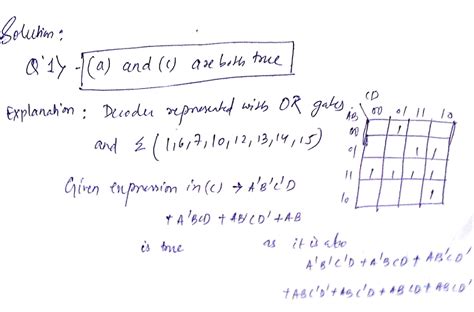 Solution:
Q'1) - (a) and (c) are both true
Explanation : Decoder represented with OR gates
and Σ (1,6,7,10,12,13,14,15)
CD
AB 00 01 11 10
00 1
01 1 1
11 1 1 1 1
10 1
Given expression in (c) → A'B'C'D
+ A'BCD + AB'CD' + AB
is true as it is also
A'B'C'D + A'BCD + AB'CD'
+ ABC'D' + ABC'D + ABCD + ABCD'